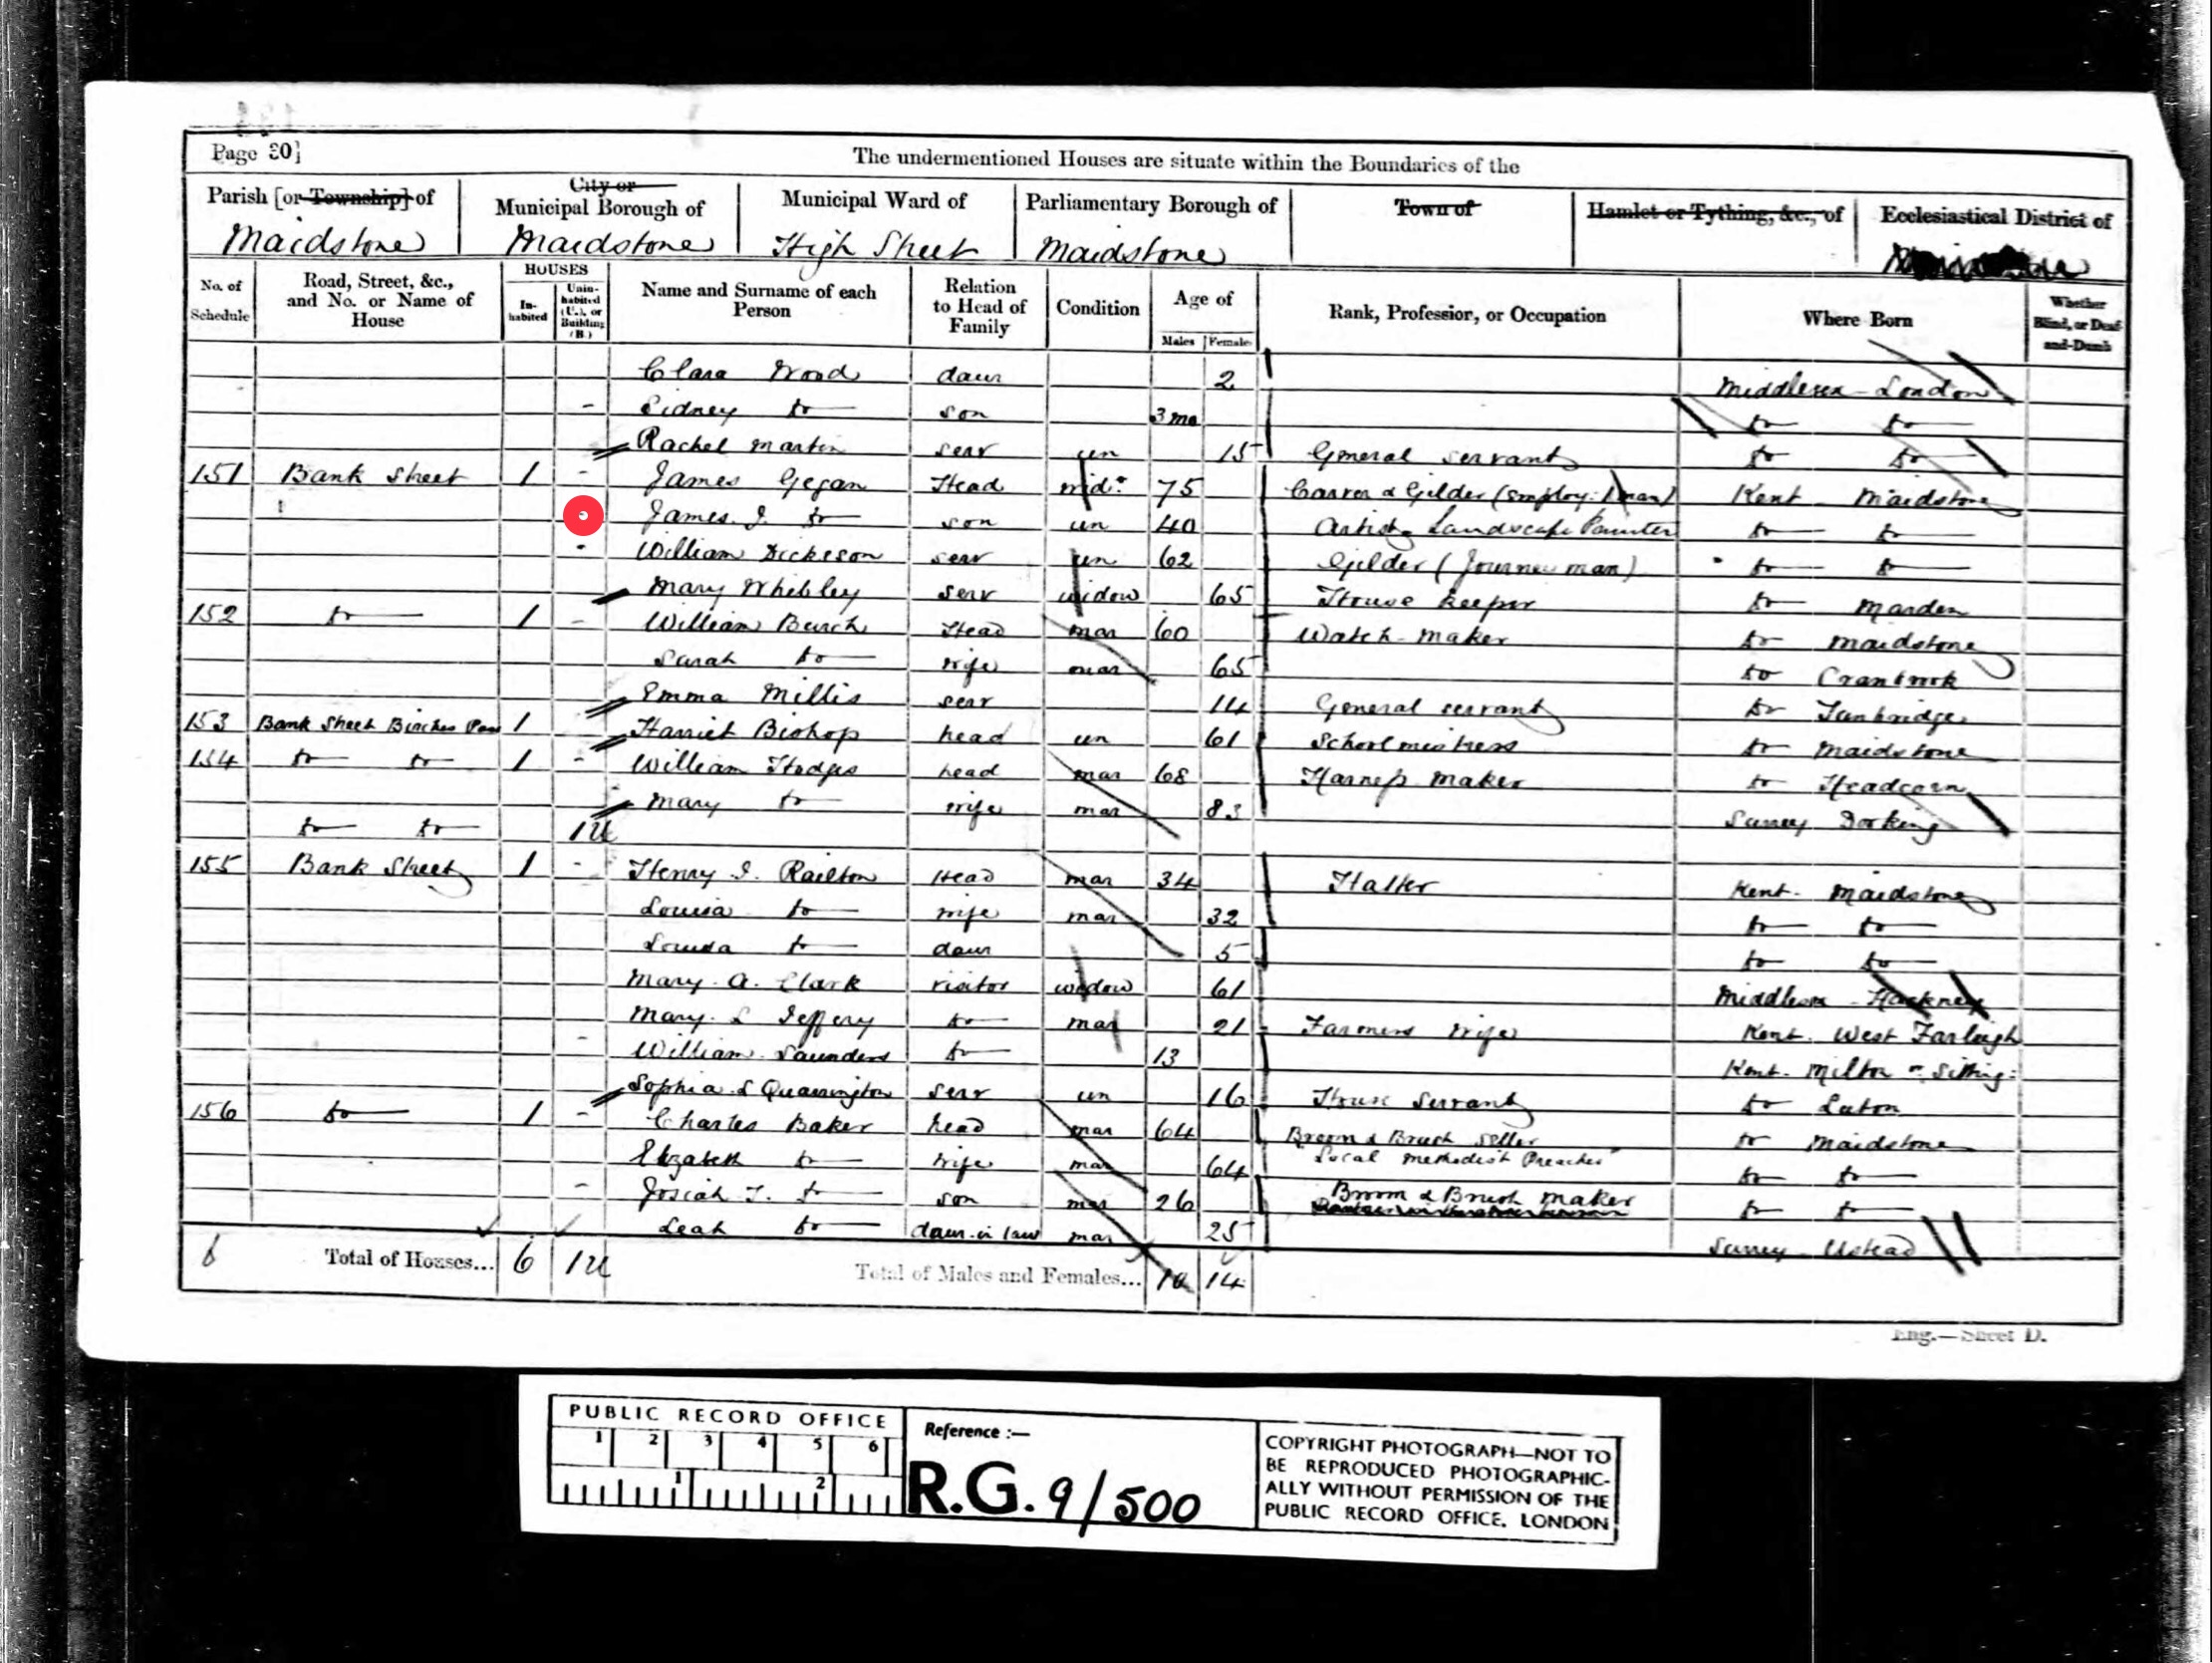 Page 30]
The undermentioned Houses are situate within the Boundaries of the
Parish [or Township] of
City or Municipal Borough of
Municipal Ward of
Parliamentary Borough of
Town of
Hamlet or Tything, &c., of
Ecclesiastical District of
Maidstone Maidstone High Street Maidstone
No. of Schedule
Road, Street, &c., and No. or Name of House
HOUSES
Inhabited
Uninhabited (U.), or Building (B.)
Name and Surname of each Person
Relation to Head of Family
Condition
Age of
Males Females
Rank, Profession, or Occupation
Where Born
Whether Blind, or Deaf-and-Dumb
Clara Wood daur 2 Middlesex London
Sidney do son 3 mo do do
Rachel Martin serv un 15 General servant do do
151 Bank Street 1 James Gegan Head wid: 75 Carver & Gilder (employ: 1 man) Kent Maidstone
James. J. do son un 40 Artist Landscape Painter do do
William Dickeson serv un 62 Gilder (Journeyman) do do
Mary Whibley serv widow 65 House keeper do Marden
152 do 1 William Burch Head mar 60 Watch maker do Maidstone
Sarah do wife mar 65 do Cranbrook
Emma Millis serv 14 General servant do Tunbridge
153 Bank Street Birches Pass 1 Harriet Bishop head un 61 Schoolmistress do Maidstone
154 do do 1 William Hodges head mar 68 Harness maker do Headcorn
Mary do wife mar 83 Surrey Dorking
do do 1U
155 Bank Street 1 Henry J. Railton Head mar 34 Hatter Kent. Maidstone
Louisa do wife mar 32 do do
Louisa do daur 5 do do
Mary. A. Clark visitor widow 61 Middlesex Hackney
Mary. L Jeffery do mar 21 Farmers wife Kent. West Farleigh
William Saunders do 13 Kent. Milton nr Sitting:
Sophia. L Quarrington serv un 16 House Servant do Luton
156 do 1 Charles Baker head mar 64 Broom & Brush seller "Local Methodist Preacher" do Maidstone
Elizabeth do wife mar 64 do do
Josiah T. do son mar 26 Broom & Brush maker do do
Leah do daur. in law mar 25 Surrey
6 Total of Houses... 6 1U Total of Males and Females... 10 14
Eng.—Sheet D.
PUBLIC RECORD OFFICE
1 2 3 4 5 6
1 2
Reference :—
R.G. 9/500
COPYRIGHT PHOTOGRAPH—NOT TO
BE REPRODUCED PHOTOGRAPHIC-
ALLY WITHOUT PERMISSION OF THE
PUBLIC RECORD OFFICE, LONDON